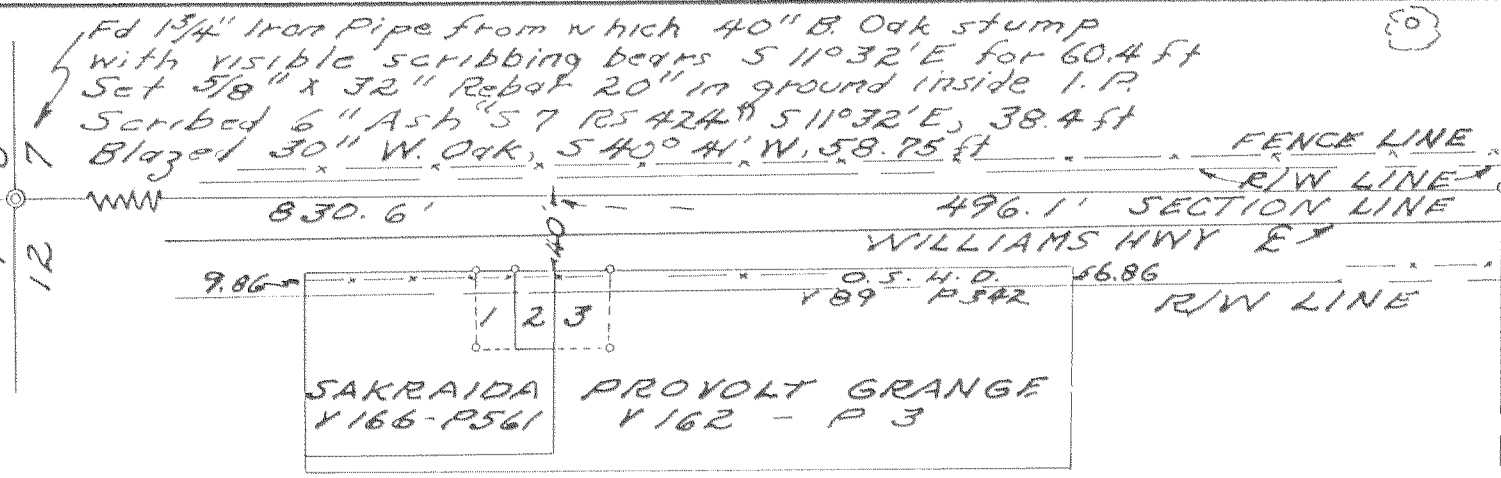 Fd 1 3/4" Iron Pipe from which 40" B. Oak stump
with visible scribbing bears S 11°32' E for 60.4 ft
Set 5/8" x 32" Rebar 20" in ground inside I.P.
Scribed 6" Ash "S 7 RS 424" S 11°32' E, 38.4 ft
Blazed 30" W. Oak, S 40° 41' W, 58.75 ft
FENCE LINE
R/W LINE
7
12
830.6'
40'
496.1' SECTION LINE
WILLIAMS HWY E
9.86
O.S.H.D.
V89 P342
6.86
R/W LINE
1 2 3
SAKRAIDA
V166-P561
PROVOLT GRANGE
V162 - P 3